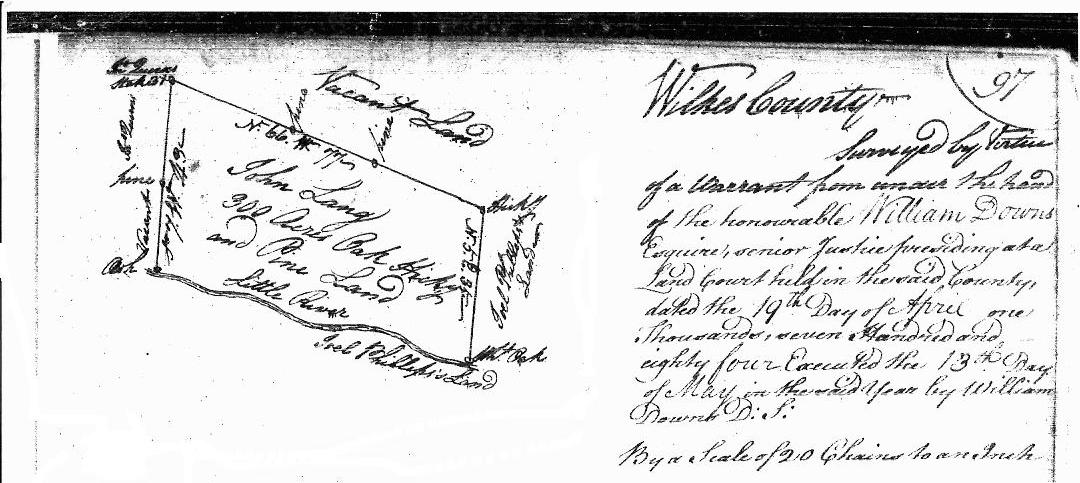 97
Wilkes County
Surveyed by Virtue
of a Warrant from under the hand
of the honourable William Downs
Esquire, senior Justice presiding at a
Land Court held in the said County,
dated the 19th Day of April one
Thousands, seven Hundred and
eighty four Executed the 13th Day
of May in the said Year by William
Downs D: S:
By a Scale of 20 Chains to an Inch
Vacant Land
pine
pine
N. 66. W 77
John Lang
300 Acres Oak Hickry
and Pine Land
Little River
Joel Phillips's Land
Wht Oak
Hicky
Joel Phillips's
Land
pine
Vacant
Ash